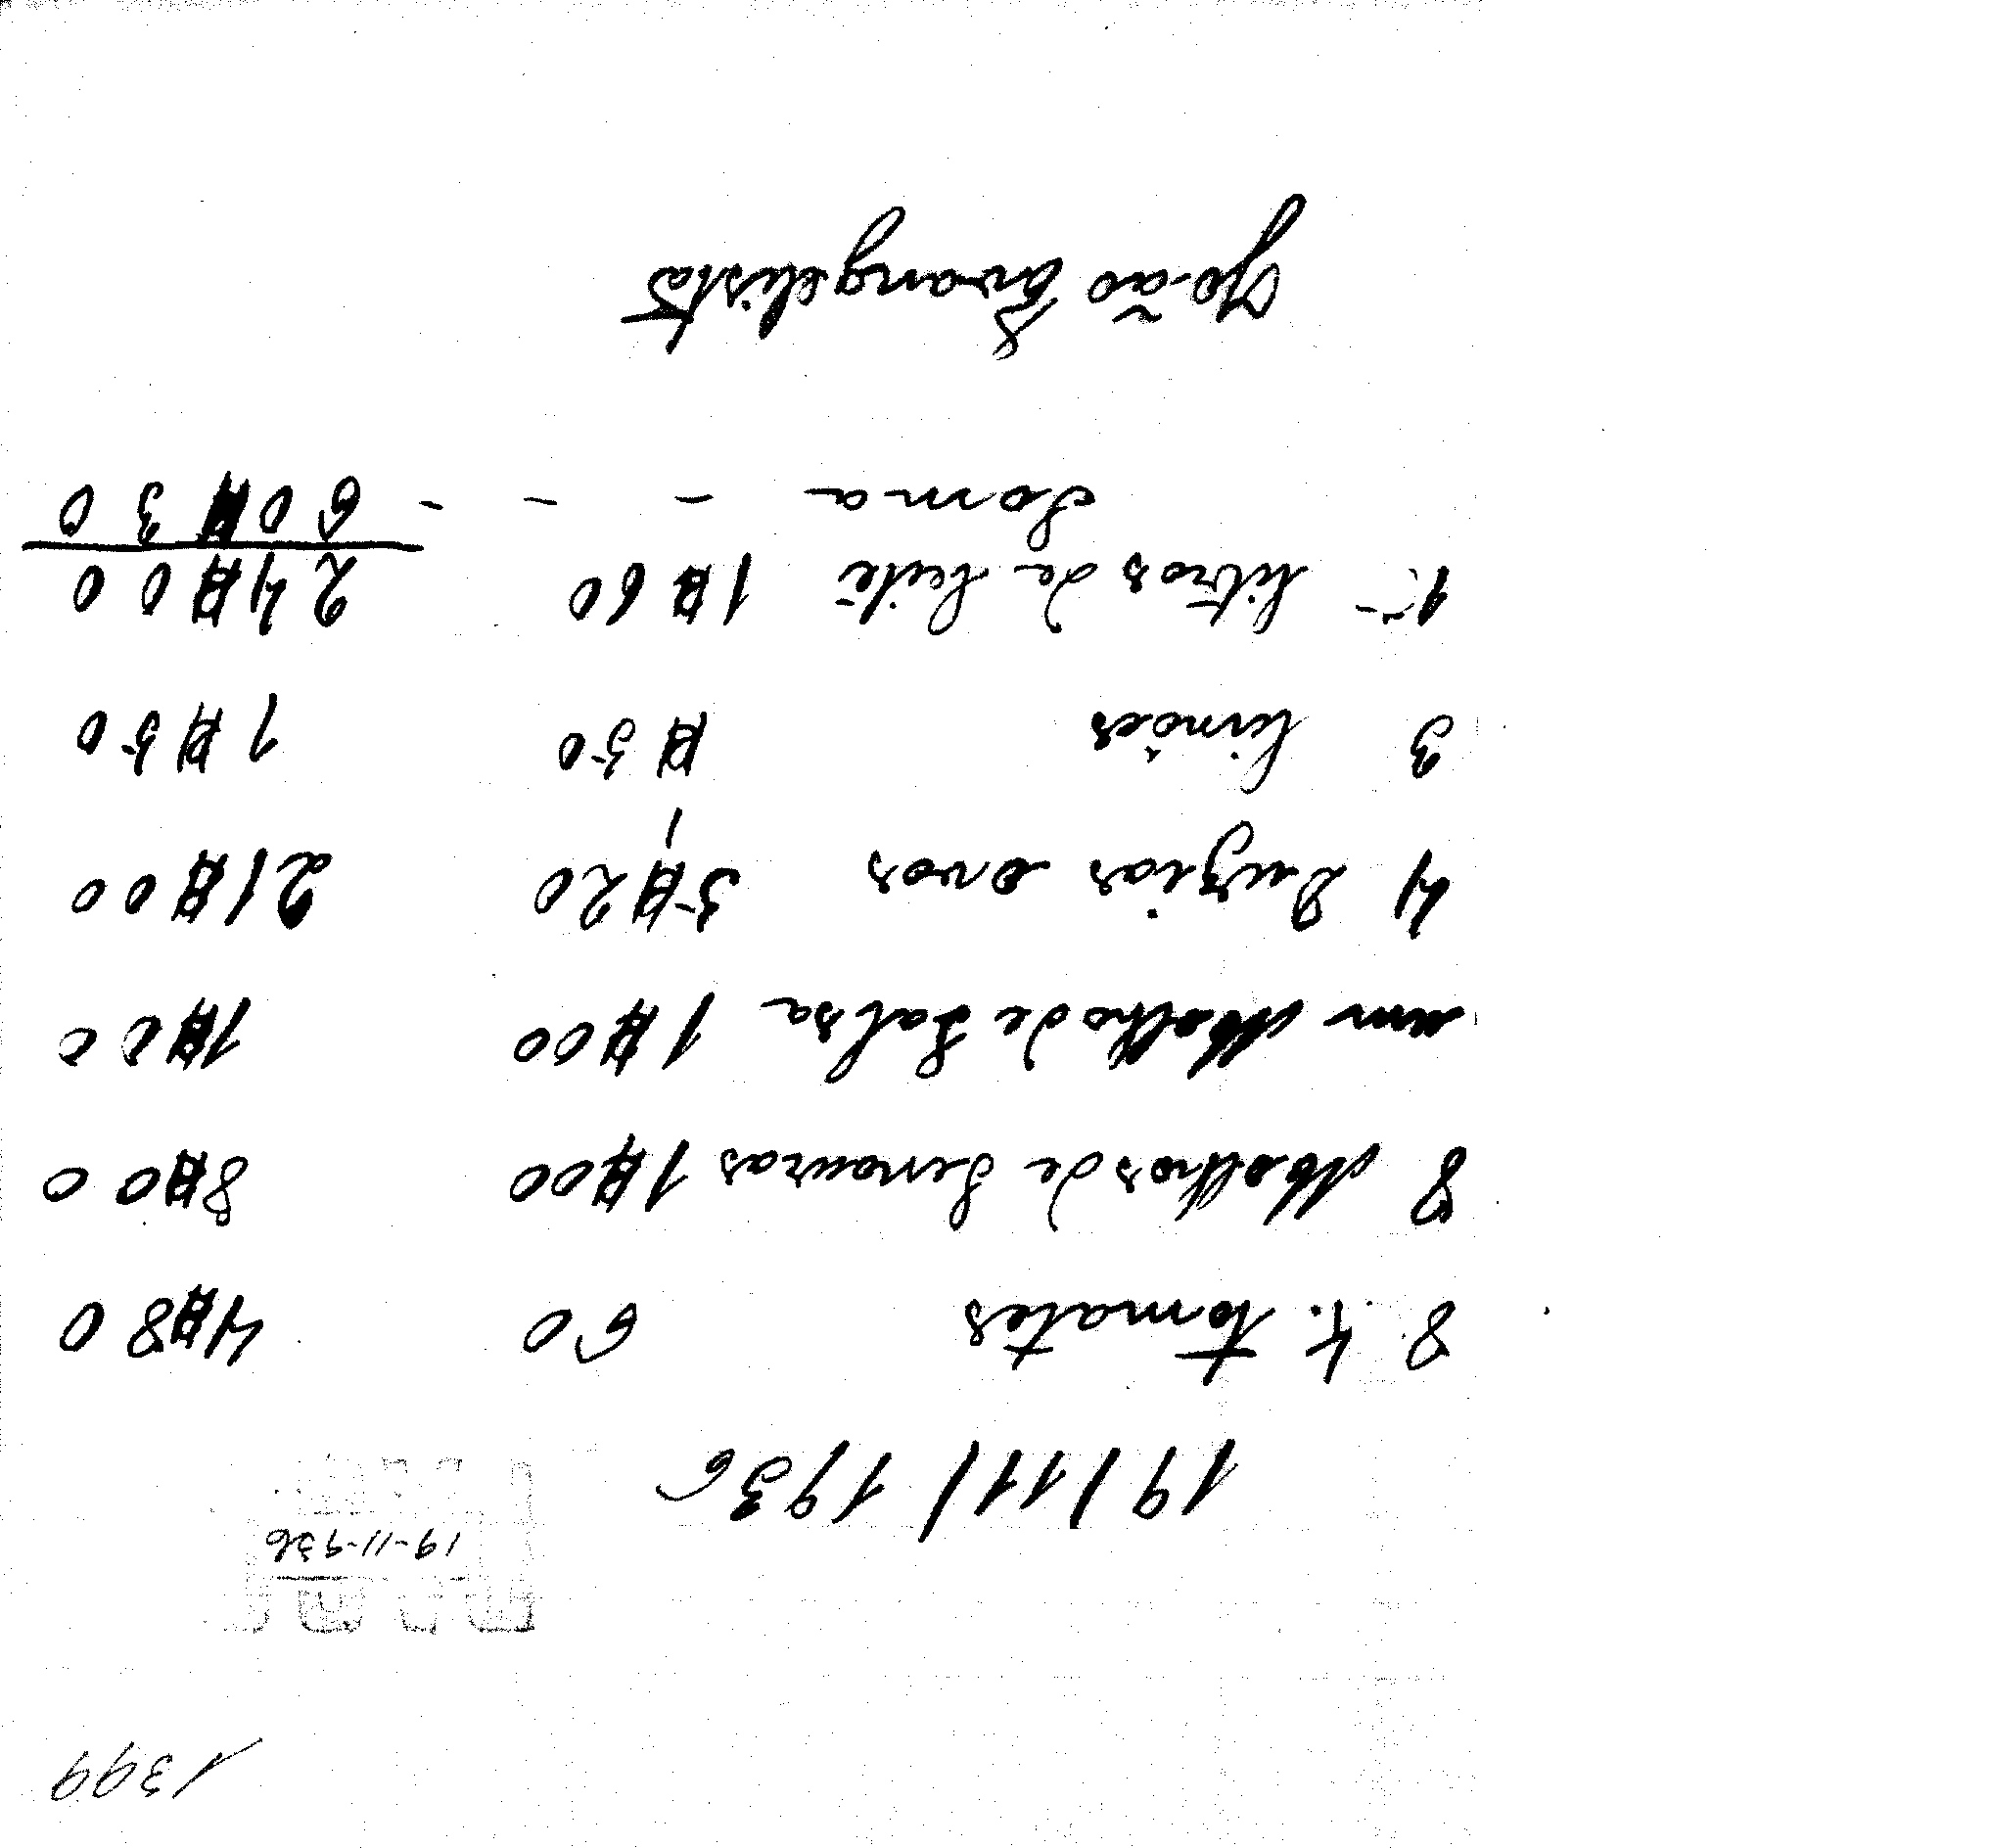 1399
19-11-936
19/11/1936
8 k. tomates 60 4$80
8 Molhos de Senouras 1$00 8$00
um Molho de Salsa 1$00 1$00
4 Duzias ovos 5$20 21$00
3 Limões $50 1$50
15 litros de Leite 1$60 24$00
Soma - - - - 60$30
João Evangelista